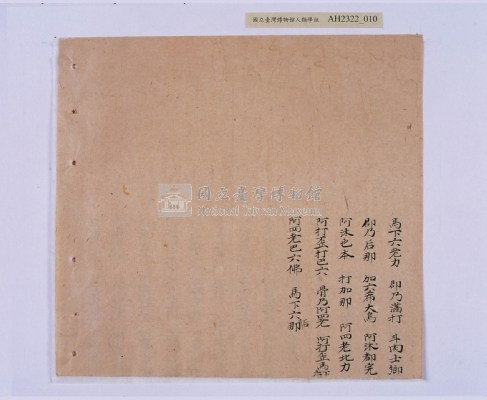 國立臺灣博物館人類學組 AH2322_010
國立臺灣博物館
National Taiwan Museum
馬下六老力 郡乃滿打 斗肉士鄉
郡乃后那 加六希大馬 阿沐都完
阿沐巴本 打加那 阿四老北力
阿打歪打巴六 骨乃阿四完 阿打歪馬
阿四老巴六佛 馬下六那